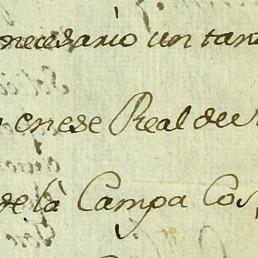 necesario un tan
en ese Real de
de là Campa Cos